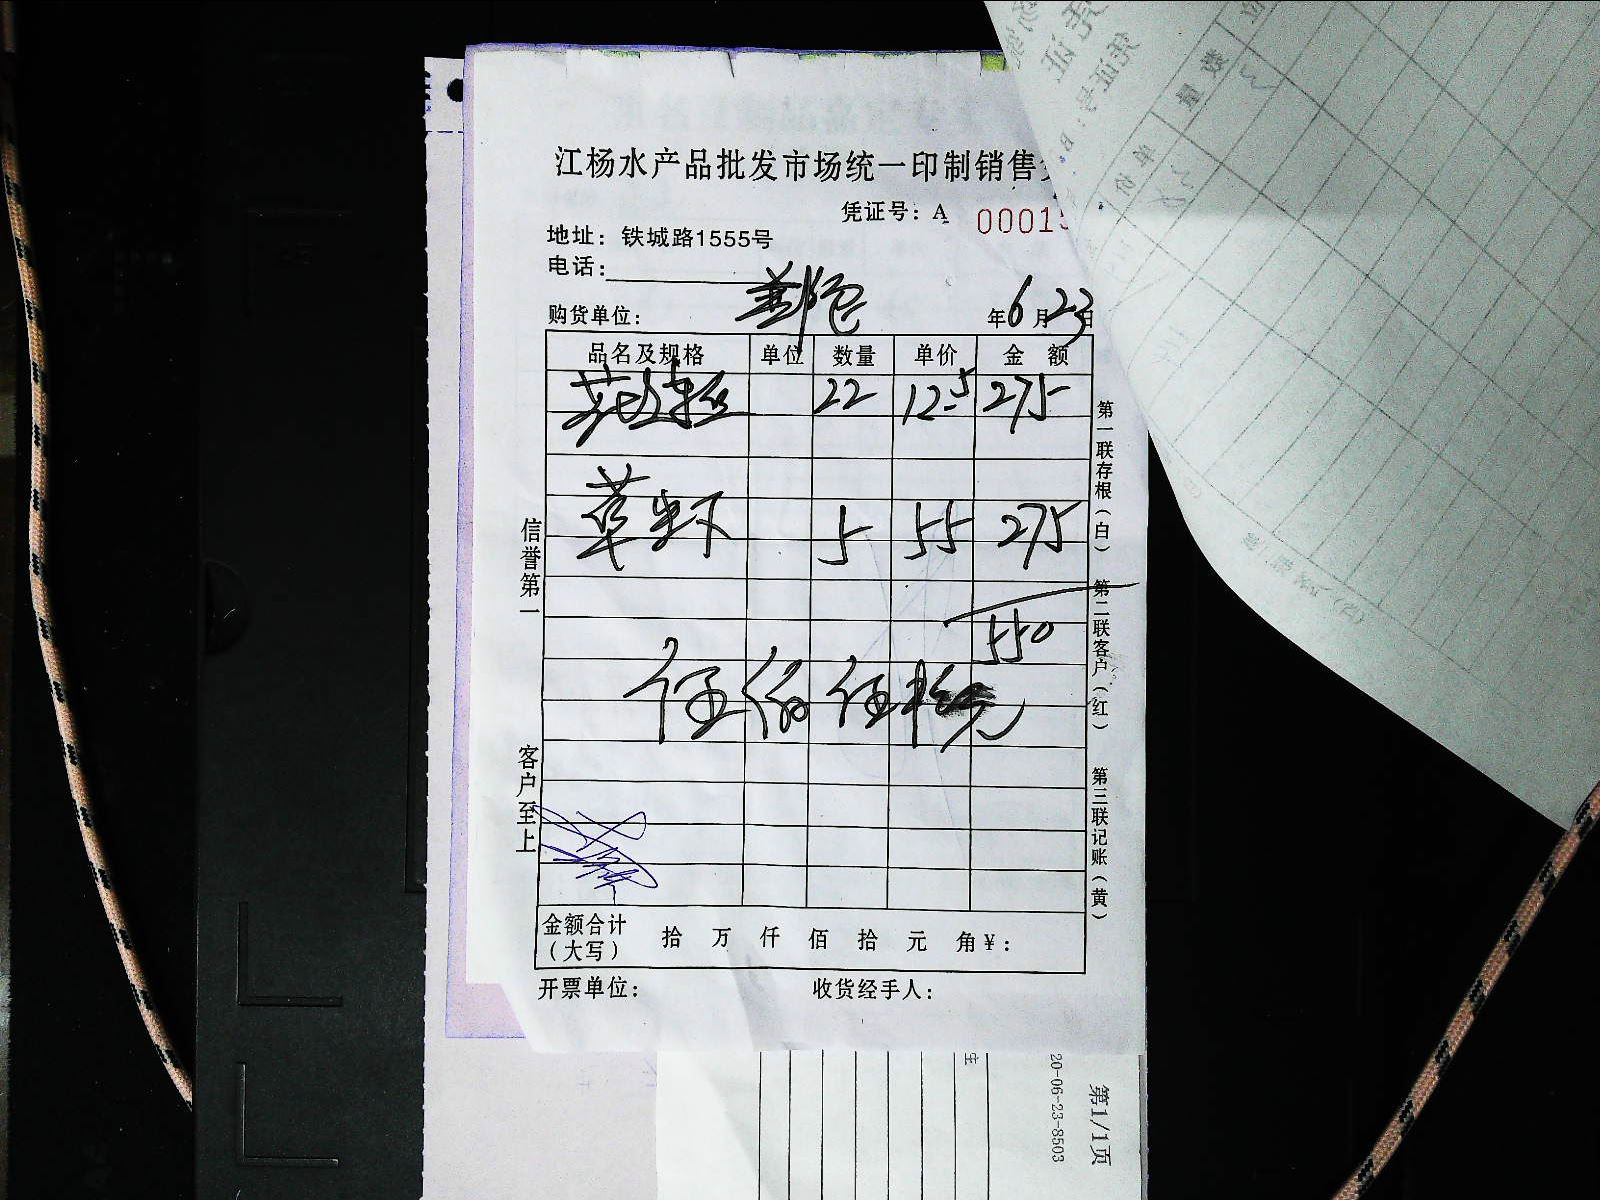 江杨水产品批发市场统一印制销售
凭证号：A 00015
地址：铁城路1555号
电话：
购货单位：
年6月23日
品名及规格 单位 数量 单价 金额
22 12.5 275
草虾 5 55 275
550
伍佰伍拾元
信誉第一
客户至上
第一联存根（白）
第二联客户（红）
第三联记账（黄）
金额合计（大写） 拾 万 仟 佰 拾 元 角 ¥：
开票单位：
收货经手人：
第1/1页
20-06-23-8503
凭证号：B
数量
单价